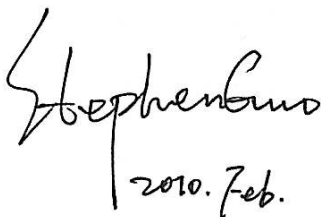 Stephen Guo
2010. Feb.